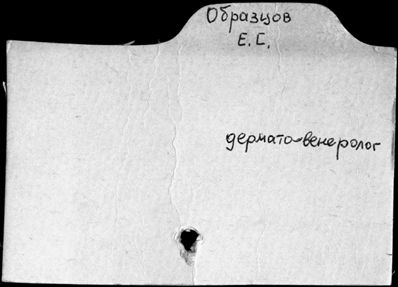 Образцов
Е.С.
дермато-венеролог